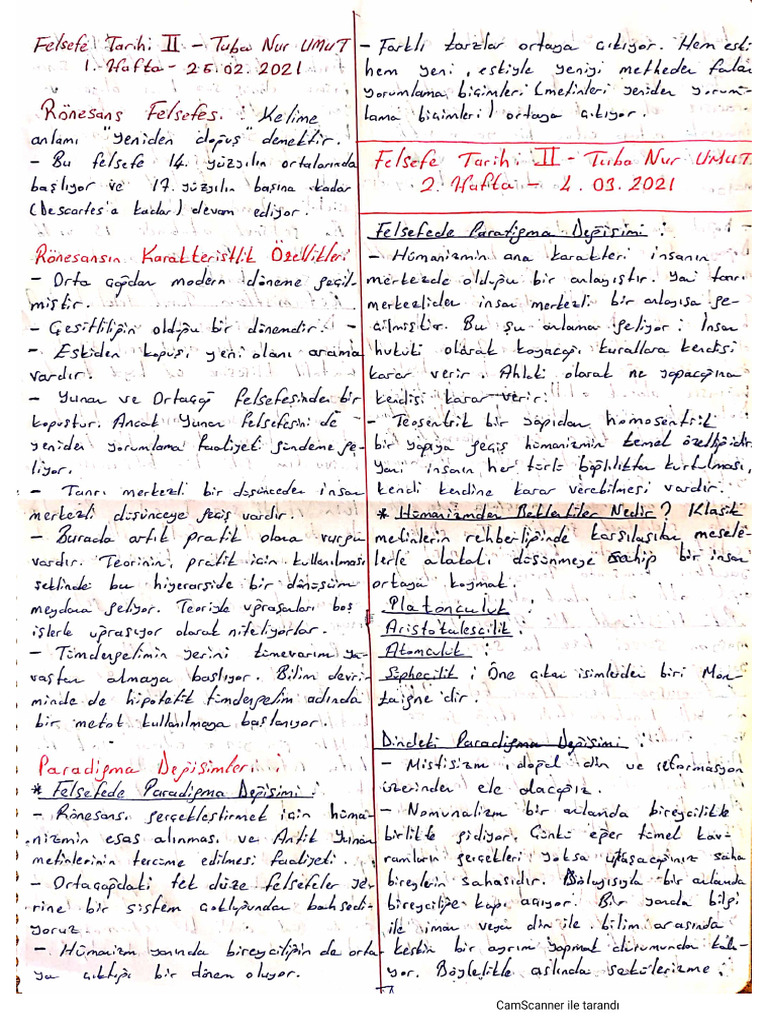 Felsefe Tarihi II - Tuba Nur UMUT
1. Hafta - 25.02.2021
Rönesans Felsefes. : Kelime
anlamı "yeniden doğuş" demektir.
- Bu felsefe 14. yüzyılın ortalarında
başlıyor ve 17. yüzyılın başına kadar
(Descartes'a kadar) devam ediyor.
Rönesansın Karakteristlik Özellikleri
- Orta çağdan modern döneme geçil-
miştir.
- Çeşitliliğin olduğu bir dönemdir.
- Eskiden kopuşı yeni olanı arama
vardır.
- Yunan ve Ortaçağ felsefesinden bir
kopuştur. Ancak Yunan felsefesini de
yeniden yorumlama faaliyeti gündeme ge-
liyor.
- Tanrı merkezli bir düşünceden insan
merkezli düşünceye geçiş vardır.
- Burada artık pratik olana vurgu
vardır. Teorinin, pratik için kullanılması
şeklinde bu hiyerarşide bir dönüşüm
meydana geliyor. Teoriyle uğraşanları boş
işlerle uğraşıyor olarak niteliyorlar.
- Tümdengelimin yerini tümevarım ya-
vaştan almaya başlıyor. Bilim devri-
minde de hipotetik tümdengelim adında
bir metot kullanılmaya başlanıyor.
Paradigma Değişimleri :
* Felsefede Paradigma Değişimi :
- Rönesansı gerçekleştirmek için hüma-
nizmin esas alınması ve Antik Yunan
metinlerinin tercüme edilmesi faaliyeti.
- Ortaçağdaki tek düze felsefeler ye-
rine bir sistem çokluğundan bahsedi-
yoruz.
- Hümanizm yanında bireyciliğin de orta-
ya çıktığı bir dönem oluyor.
- Farklı tarzlar ortaya çıkıyor. Hem eski
hem yeni, eskiyle yeniyi metheden
yorumlama biçimleri (metinleri yeniden yorum-
lama biçimleri) ortaya çıkıyor.
Felsefe Tarihi II - Tuba Nur UMUT
2. Hafta - 4.03.2021
Felsefede Paratigma Değişimi :
- Hümanizmin ana karakteri insanın
merkezde olduğu bir anlayıştır. Yani tanrı
merkezliden insan merkezli bir anlayışa ge-
çilmiştir. Bu şu anlama geliyor : İnsan
hukuki olarak koyacağı kurallara kendisi
karar verir. Ahlaki olarak ne yapacağına
kendisi karar verir.
- Teosentrik bir yapıdan homosentrik
bir yapıya geçiş hümanizmin temel özelliğidir.
Yani insanın her türlü bağlılıktan kurtulması,
kendi kendine karar verebilmesi vardır.
* Hümanizmden Beklentiler Nedir? Klasik
metinlerin rehberliğinde karşılaşılan mesele-
lerle alakalı düşünmeye sahip bir insan
ortaya koymak.
Platonculuk :
Aristotalesçilik :
Atomculuk :
Şüphecilik : Öne çıkan isimlerden biri Mon-
taigne'dir.
Dindeki Paradigma Değişimi :
- Mistisizm, doğal din ve reformasyon
üzerinden ele alacağız.
- Nomunalizm bir anlamda bireycilikle
birlikte gidiyor. Çünkü eğer tümel kav-
ramların gerçekleri yoksa ulaşacağınız saha
bireylerin sahasıdır. Dolayısıyla bir anlamda
bireyciliğe kapı açıyor. Bir yanda bilgi
ile iman veya din ile bilim arasında
keskin bir ayrım yapmak durumunda kalı-
yor. Böylelikle aslında sekülerizme
CamScanner ile tarandı